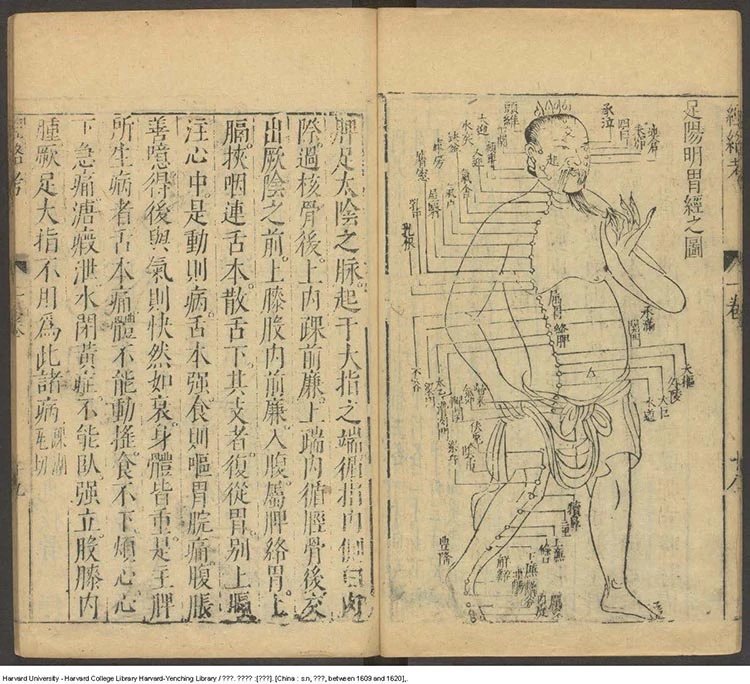 經絡考
一卷
十八
足陽明胃經之圖
承泣
四白
頭維
大迎
水突
氣舍
氣戶
庫房
屋翳
乳中
乳根
不容
承滿
關門
屬胃
絡脾
大巨
水道
伏兔
陰市
梁丘
犢鼻
上廉
條口
豐隆
解谿
内庭
脾足太陰之脉。起于大指之端循指内側白肉
際。過核骨後。上内踝前廉。上踹内循脛骨後交
出厥陰之前。上膝股内前廉。入腹。屬脾絡胃。上
膈。挾咽連舌本散舌下。其支者復從胃别上膈
注心中是動則病。舌本强食則嘔胃脘痛。腹脹
善噫得後與氣則快然如衰。身體皆重是主脾
所生病者舌本痛體不能動搖。食不下煩心心
下急痛溏瘕泄水閉黃疸。不能臥。强立股膝内
腫厥足大指不用爲此諸病
經絡考
Harvard University - Harvard College Library Harvard-Yenching Library / ???. ???? :[???]. [China : s.n, ???, between 1609 and 1620],.